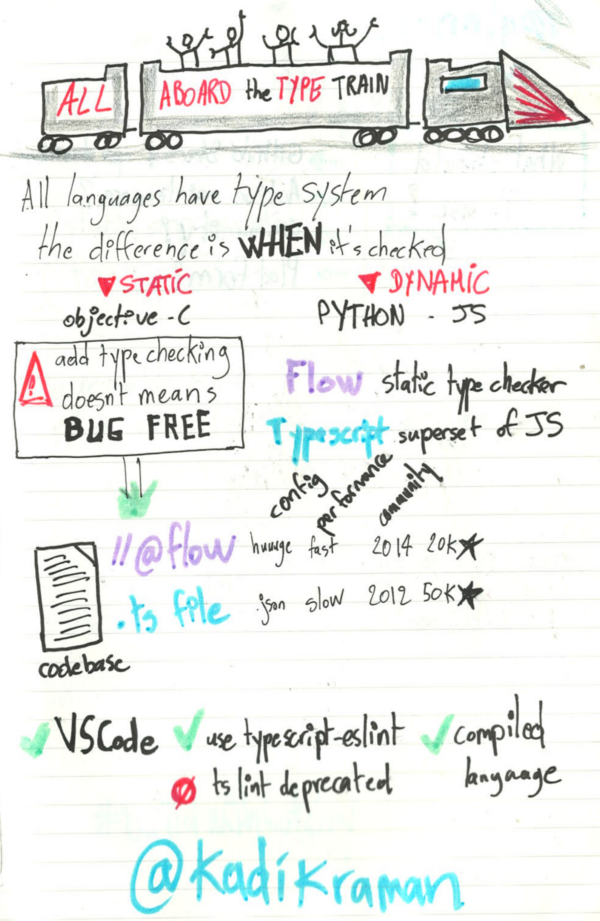 ALL ABOARD the TYPE TRAIN
All languages have type system
the difference is WHEN it's checked
▼ STATIC
objective-C
▼ DYNAMIC
PYTHON - JS
add type checking
doesn't means
BUG FREE
Flow static type checker
Typescript superset of JS
config performance community
//@flow huuuge fast 2014 20K★
.ts file .json slow 2012 50K★
codebase
VSCode
use typescript-eslint
tslint deprecated
compiled
language
@kadikraman